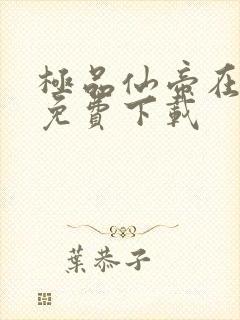 極品仙帝在
免費下載
葉恭子